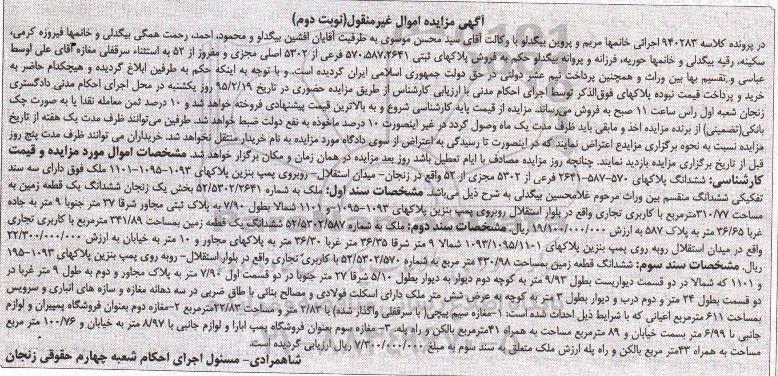 آگهی مزایده اموال غیرمنقول(نوبت دوم)
در پرونده کلاسه ۹۴۰۲۸۳ اجرائی خانمها مریم و پروین بیگدلو با وکالت آقای سید محسن موسوی به طرفیت آقایان افشین بیگدلو و محمود، احمد، رحمت همگی بیگدلی و خانمها فیروزه کرمی،
سکینه، رقیه بیگدلی و خانمها حوریه، فرزانه و پروانه بیگدلو حکم به فروش پلاکهای ثبتی ۵۷۰،۵۸۷،۲۶۴۱ فرعی از ۵۳۰۲ اصلی مجزی و مفروز از ۵۲ به استثناء سرقفلی مغازه آقای علی اوسط
عباسی و تقسیم بها بین وراث و همچنین پرداخت نیم عشر دولتی در حق دولت جمهوری اسلامی ایران گردیده است. و با توجه به اینکه حکم به طرفین ابلاغ گردیده و هیچکدام حاضر به
خرید و پرداخت قیمت نبوده پلاکهای فوق‌الذکر توسط اجرای احکام مدنی با ارزیابی کارشناس از طریق مزایده حضوری در تاریخ ۹۵/۲/۱۹ روز یکشنبه در محل اجرای احکام مدنی دادگستری
زنجان شعبه اول راس ساعت ۱۱ صبح به فروش می‌رساند. مزایده از قیمت پایه کارشناسی شروع و به بالاترین قیمت پیشنهادی فروخته خواهد شد و ۱۰ درصد ثمن معامله نقدا یا به صورت چک
بانکی(تضمینی) از برنده مزایده اخذ و مابقی باید ظرف مدت یک ماه وصول گردد در غیر اینصورت ۱۰ درصد ماخوذه به نفع دولت ضبط خواهد شد. طرفین می‌توانند ظرف مدت یک هفته از تاریخ
مزایده نسبت به نحوه برگزاری مزایده اعتراض نمایند که در اینصورت تا رسیدگی به اعتراض از سوی دادگاه مورد مزایده به نام خریدار منتقل نخواهد شد. خریداران می توانند ظرف مدت پنج روز
قبل از تاریخ برگزاری مزایده بازدید نمایند. چنانچه روز مزایده مصادف با ایام تعطیل باشد روز بعد مزایده در همان زمان و مکان برگزار خواهد شد. مشخصات اموال مورد مزایده و قیمت
کارشناسی: ششدانگ پلاکهای ۵۷۰-۵۸۷-۲۶۴۱ فرعی از ۵۳۰۲ مجزی از ۵۲ واقع در زنجان- میدان استقلال- روبروی پمپ بنزین پلاکهای ۱۰۹۳-۱۰۹۵-۱۱۰۱ ملک فوق دارای سه سند
تفکیکی ششدانگ منقسم بین وراث مرحوم غلامحسین بیگدلی به شرح ذیل می‌باشد. مشخصات سند اول: ملک به شماره ۵۲/۵۳۰۲/۲۶۴۱ بخش یک زنجان ششدانگ یک قطعه زمین به
مساحت ۳۱۰/۷۷مترمربع با کاربری تجاری واقع در بلوار استقلال روبروی پمپ بنزین پلاکهای ۱۰۹۳-۱۰۹۵ و ۱۱۰۱ شمالا بطول ۷/۹۰ به پلاک ثبتی مجاور شرقا ۳۷ متر جنوبا ۹ متر به جاده
غربا ۳۶/۶۵ متر به پلاک ۵۸۷ به ارزش ۱۹/۱۰۰/۰۰۰/۰۰۰ ریال. مشخصات سند دوم: ملک به شماره ۵۲/۵۳۰۲/۵۸۷ ششدانگ یک قطعه زمین بمساحت ۳۴۱/۸۹ مترمربع با کاربری تجاری
واقع در میدان استقلال روبه روی پمپ بنزین پلاکهای ۱۰۹۳/۱۰۹۵/۱۱۰۱ شمالا ۹ متر شرقا ۳۶/۳۵ متر غربا ۳۶/۳۰ متر به پلاکهای مجاور و ۱۰ متر به خیابان به ارزش ۲۲/۳۰۰/۰۰۰/۰۰۰
ریال. مشخصات سند سوم: ششدانگ قطعه زمین بمساحت ۴۳۰/۹۸ متر مربع به شماره ۵۲/۵۳۰۲/۵۷۰ با کاربری تجاری واقع در بلوار استقلال- روبه روی پمپ بنزین پلاکهای ۱۰۹۳-۱۹۵
و ۱۱۰۱ که شمالا در دو قسمت دیواریست بطول ۹/۹۳ متر به کوچه دوم دیوار به دیوار بطول ۵/۱۰ شرقا ۲۷ متر جنوبا در دو قسمت اول ۷/۹۰ متر به پلاک مجاور و دوم به طول ۹ متر غربا در
دو قسمت بطول ۲۴ متر و دوم درب و دیوار بطول ۱۳متر به کوچه به عرض شش متر ملک دارای اسکلت فولادی و مصالح بنائی با طاق ضربی در سه دهانه مغازه و سازه های انباری و سرویس
بمساحت ۶۱۱ مترمربع اعیانی که با شرایط ذیل احداث شده است: ۱-مغازه سیم پیچی (با سرقفلی واگذار شده) با ۲/۸۳ متر و مساحت ۲۲/۸۳مترمربع ۲-مغازه دوم بعنوان فروشگاه پمپیران و لوازم
جانبی با ۶/۹۹ متر بسمت خیابان و ۸۹ مترمربع مساحت به همراه ۴۱مترمربع بالکن و راه پله. ۳- مغازه سوم بعنوان فروشگاه پمپ ابارا و لوازم جانبی با ۸/۹۷ متر به خیابان و ۱۰۰/۷۶ متر مربع
مساحت به همراه ۴۳متر مربع بالکن و راه پله ارزش ملک متعلق به سند سوم به مبلغ ۷/۳۰۰/۰۰۰/۰۰۰ ریال ارزیابی گردیده است.
شاهمرادی- مسئول اجرای احکام شعبه چهارم حقوقی زنجان